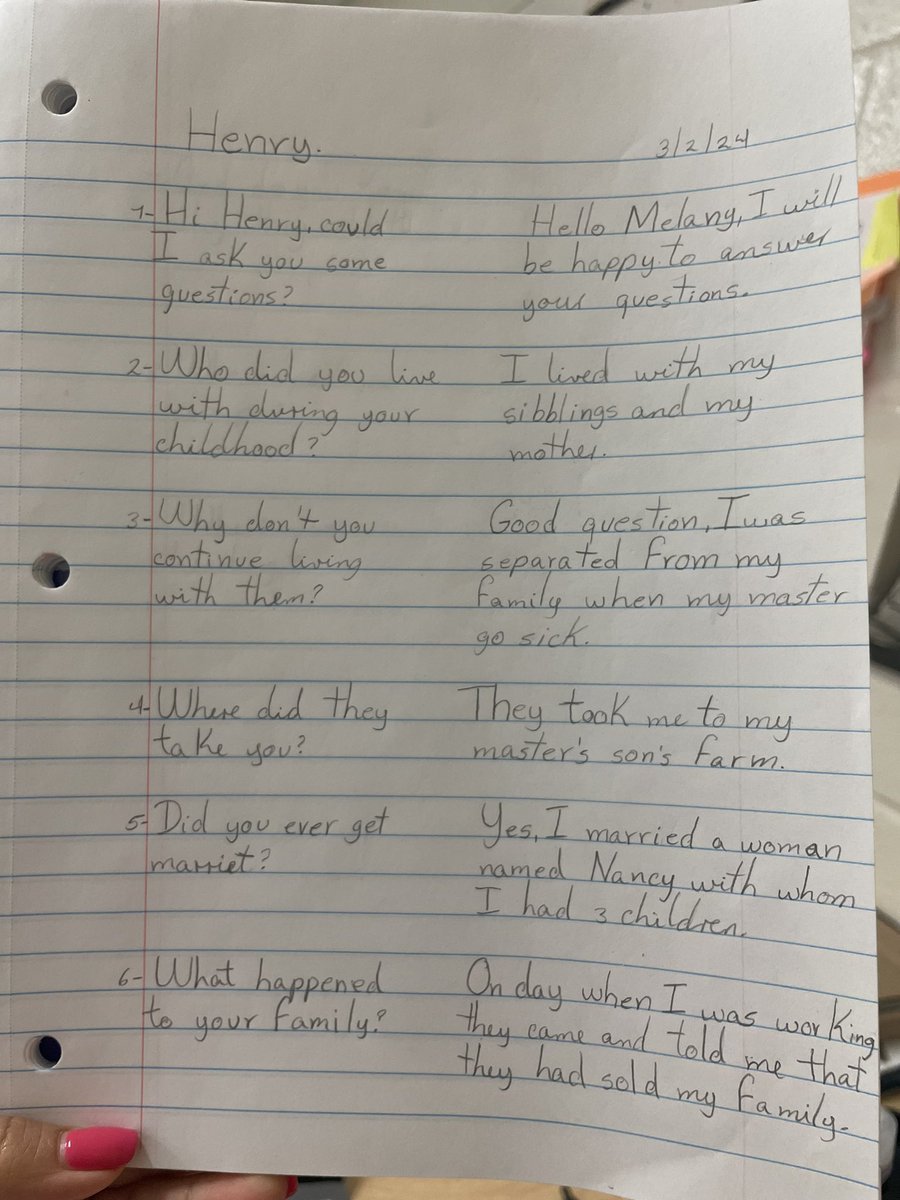 Henry. 3/2/24
1- Hi Henry, could
I ask you some
questions?
Hello Melang, I will
be happy to answer
your questions.
2- Who did you live
with during your
childhood?
I lived with my
sibblings and my
mother.
3- Why don't you
continue living
with them?
Good question, I was
separated from my
family when my master
go sick.
4- Where did they
take you?
They took me to my
master's son's farm.
5- Did you ever get
marriet?
Yes, I married a woman
named Nancy with whom
I had 3 children.
6- What happened
to your family?
On day when I was working
they came and told me that
they had sold my family.